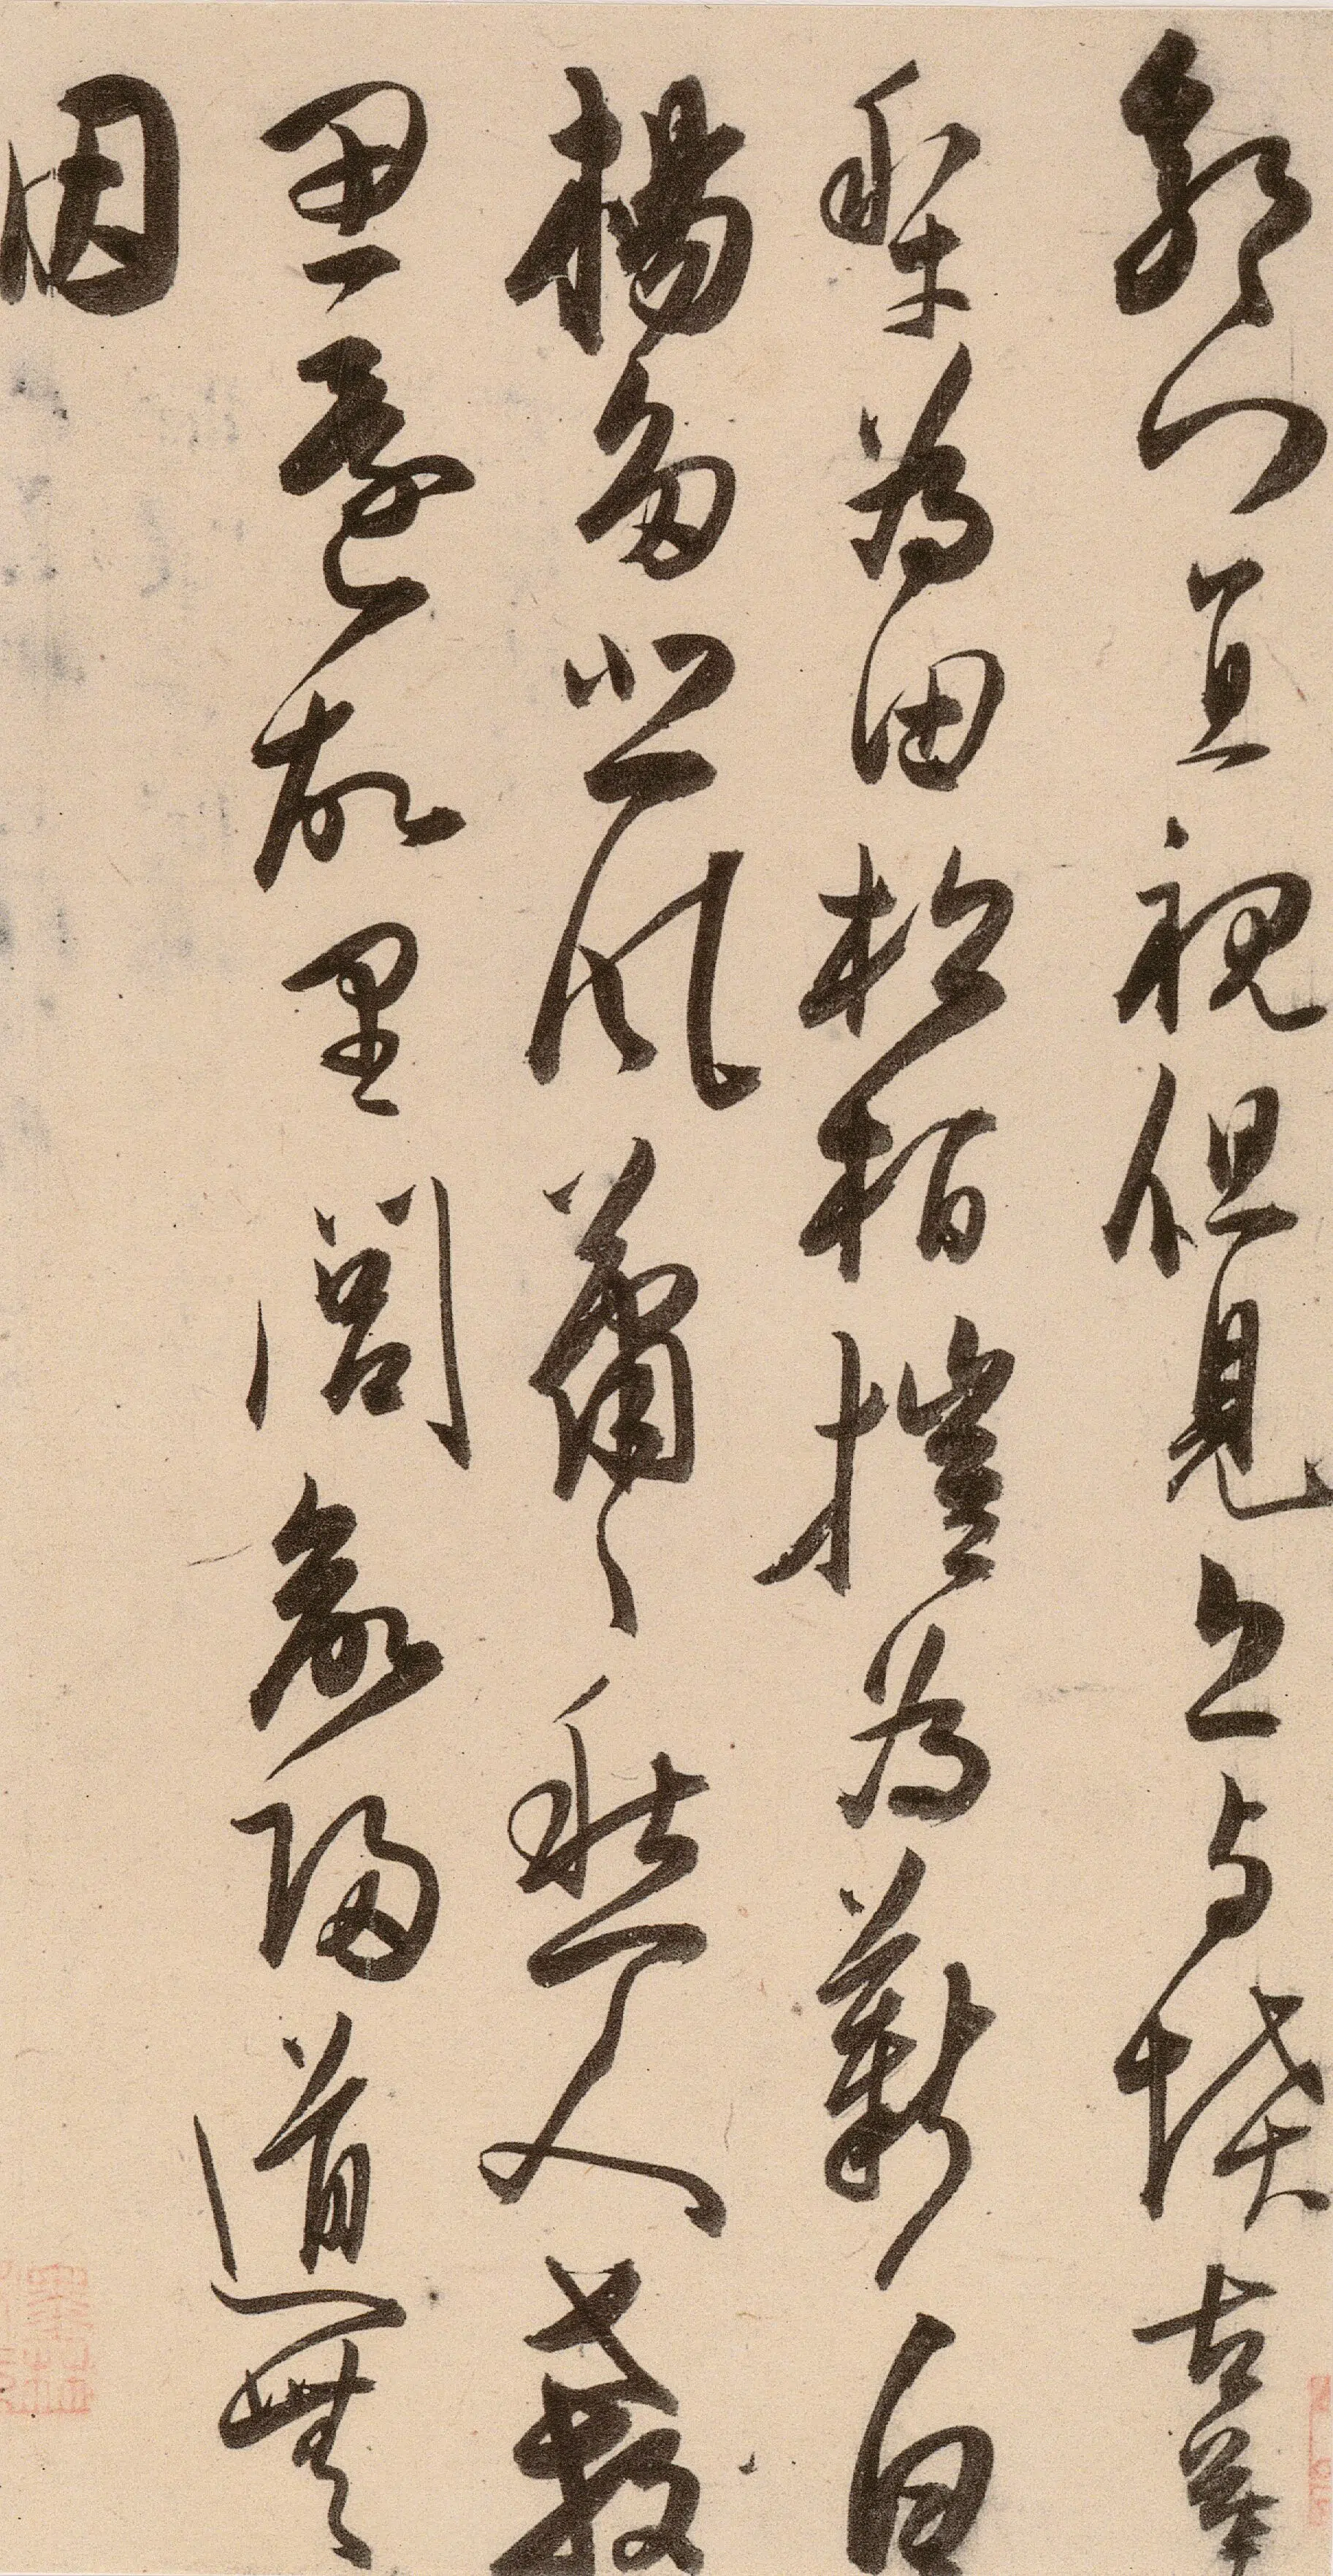 郭門直視但見丘与墳古墓
犁為田松柏摧為薪白
楊多悲風蕭〻愁人殺
思還故里閭欲歸道無
因